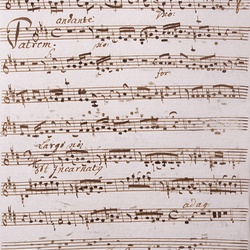 andante
pia:
Patrem.
pia:
for
Largo
Et Incarnaty
adag